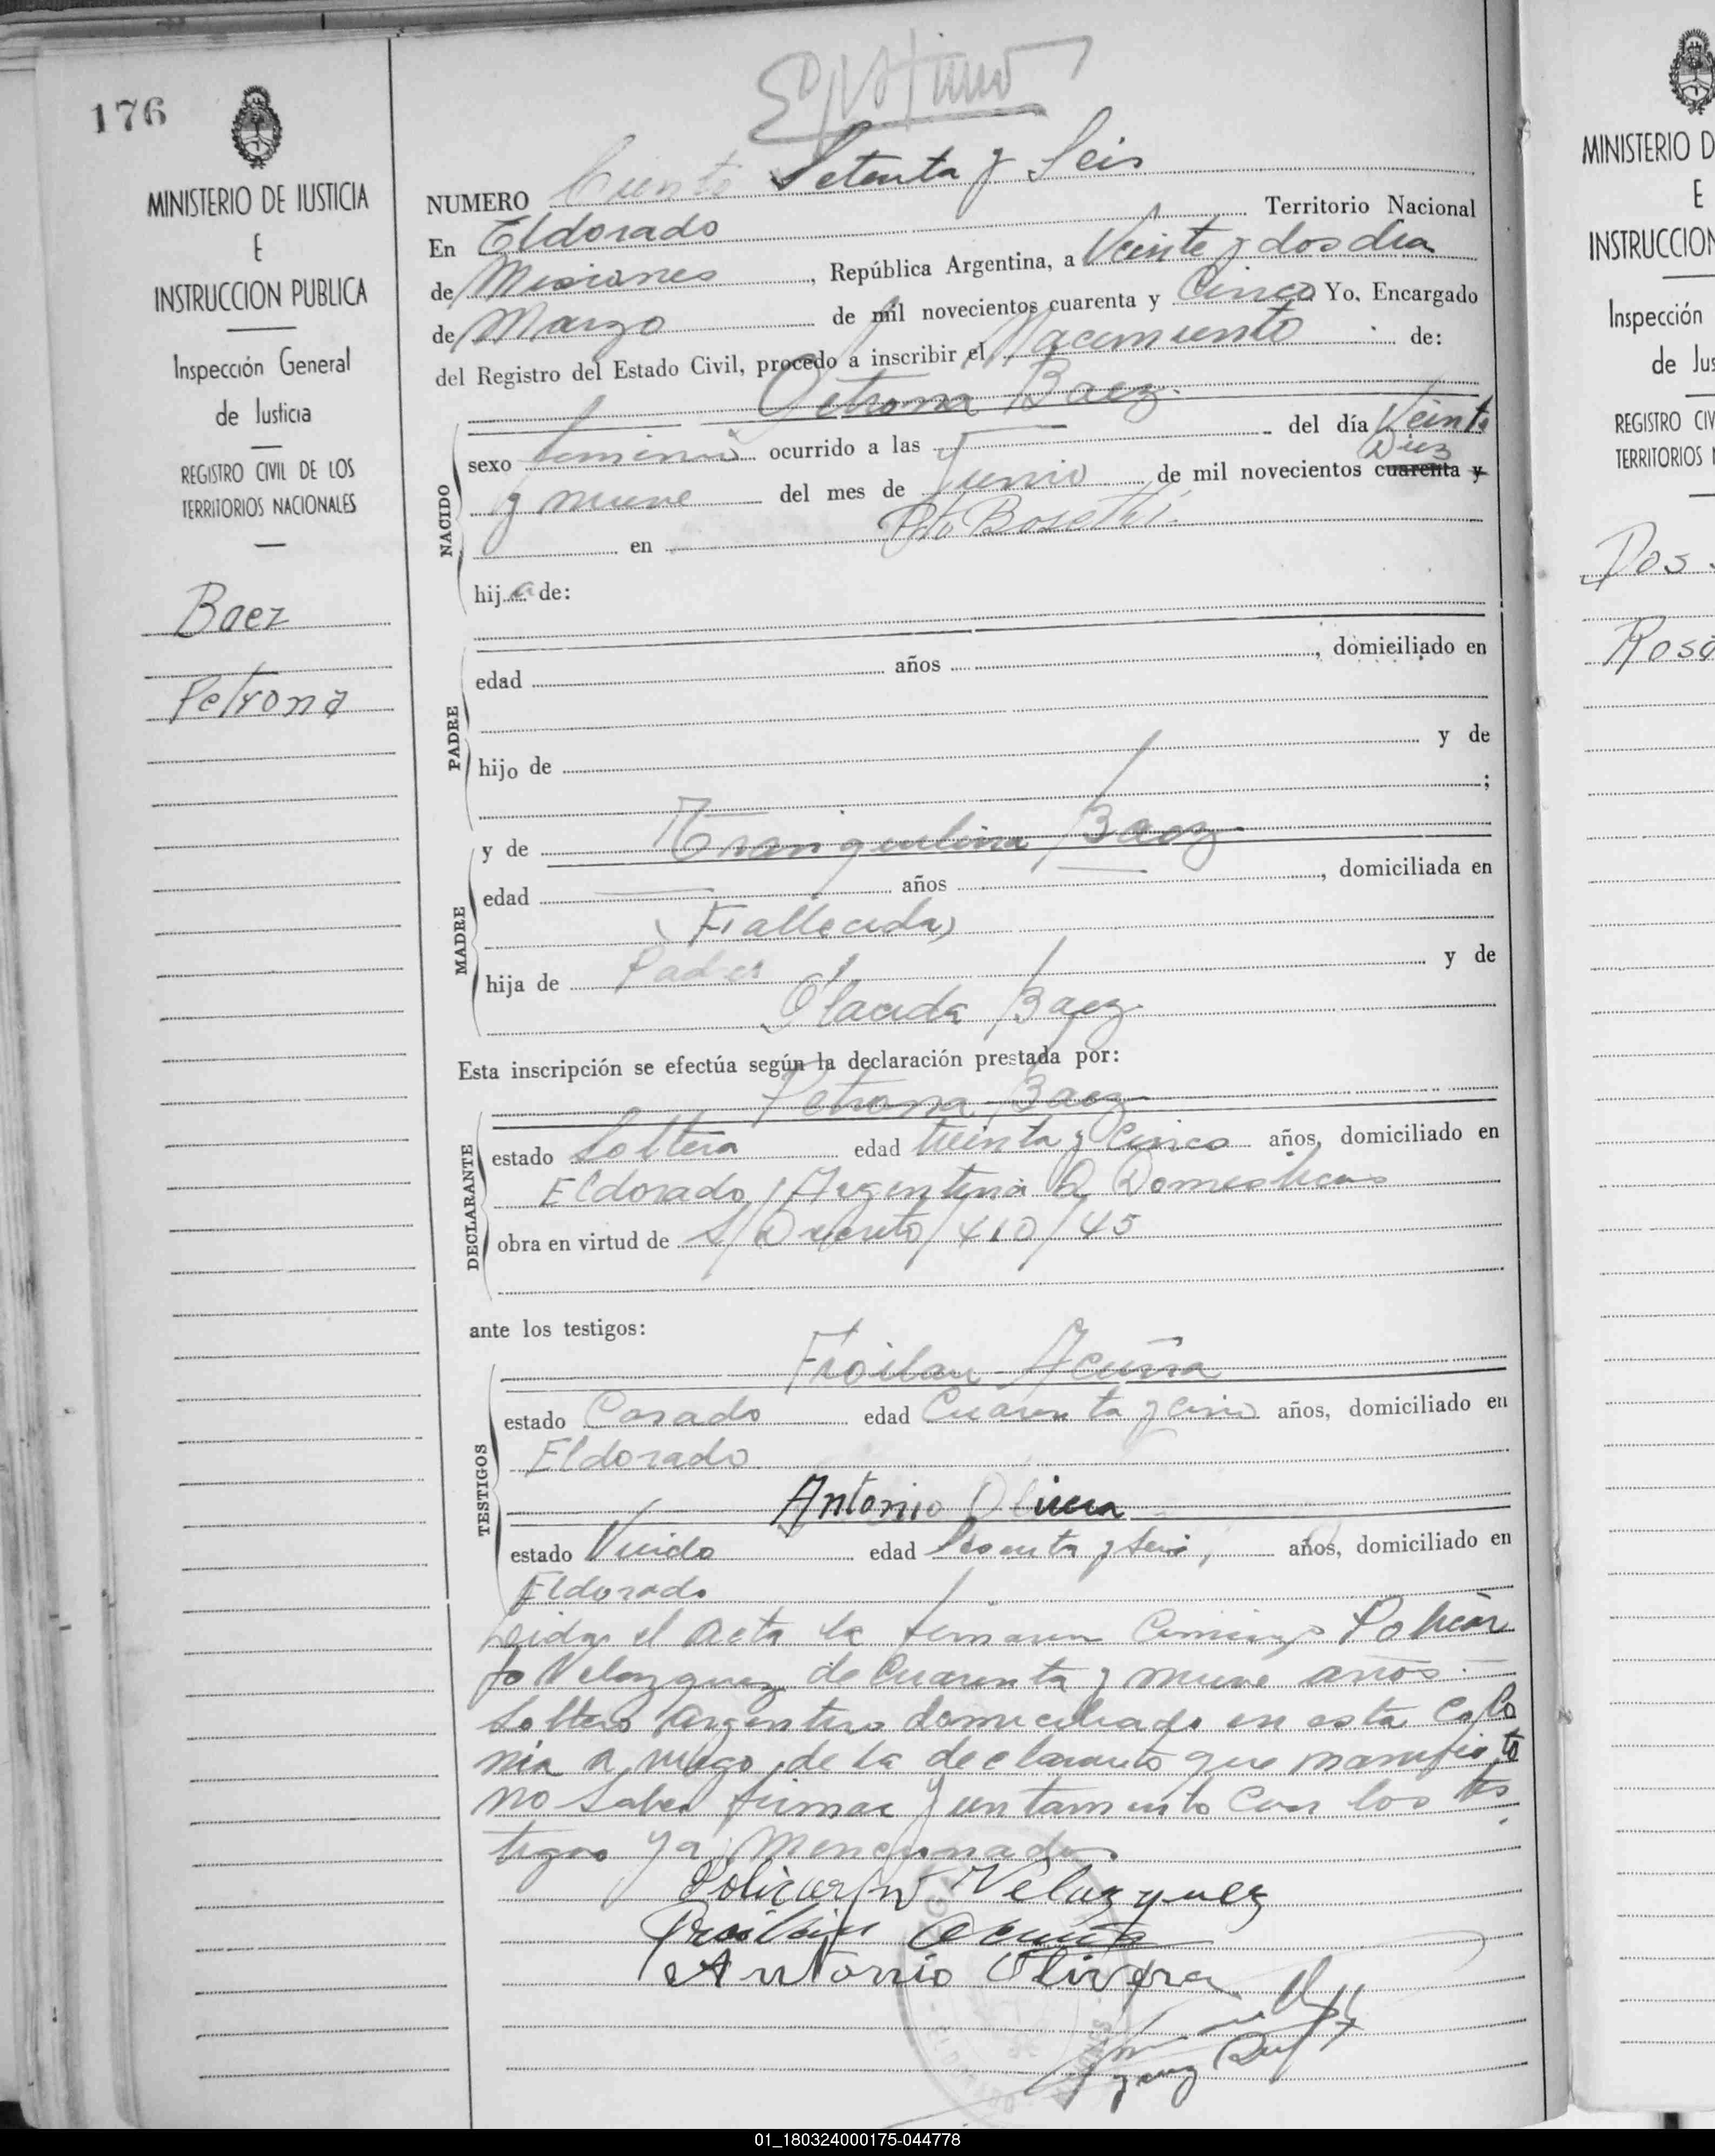 176
MINISTERIO DE JUSTICIA
E
INSTRUCCION PUBLICA
Inspección General
de Justicia
REGISTRO CIVIL DE LOS
TERRITORIOS NACIONALES
Baez
Petrona
NUMERO Ciento Setenta y Seis
En Eldorado Territorio Nacional
de Misiones, República Argentina, a Veinte y dos dia
de Marzo de mil novecientos cuarenta y Cinco Yo, Encargado
del Registro del Estado Civil, procedo a inscribir el Nacimiento de:
Petrona Baez
NACIDO
sexo femenino ocurrido a las del día Veinte
Diez
y nueve del mes de Junio de mil novecientos cuarenta y
en Pto Bosetti
hija de:
PADRE
edad años, domiciliado en
hijo de y de
;
MADRE
y de Tranquilina Baez
edad años, domiciliada en
(Fallecida)
hija de y de
Placida Baez
Esta inscripción se efectúa según la declaración prestada por:
DECLARANTE
Petrona Baez
estado Soltera edad treinta y Cinco años, domiciliado en
Eldorado Argentina Q. Domesticos
obra en virtud de S/Decreto/410/45
ante los testigos:
TESTIGOS
Froilan Acuña
estado Casado edad Cuarenta y años, domiciliado en
Eldorado
Antonio Olivera
estado Viudo edad y Seis, años, domiciliado en
Eldorado
Leida el Acta la firman Conmigo Policar
po Velazquez de Cuarenta y nueve años
Soltero Argentino domiciliado en esta Colo
nia a ruego de la declarante que manifiesta
no saber firmar Juntamente Con los tes
tigos ya mencionados
Policarpo Velazquez
Froilan Acuña
Antonio Olivera
MINISTERIO D
E
INSTRUCCION
Inspección
de Jus
REGISTRO CIV
TERRITORIOS
Dos
Rosa
01_180324000175-044778